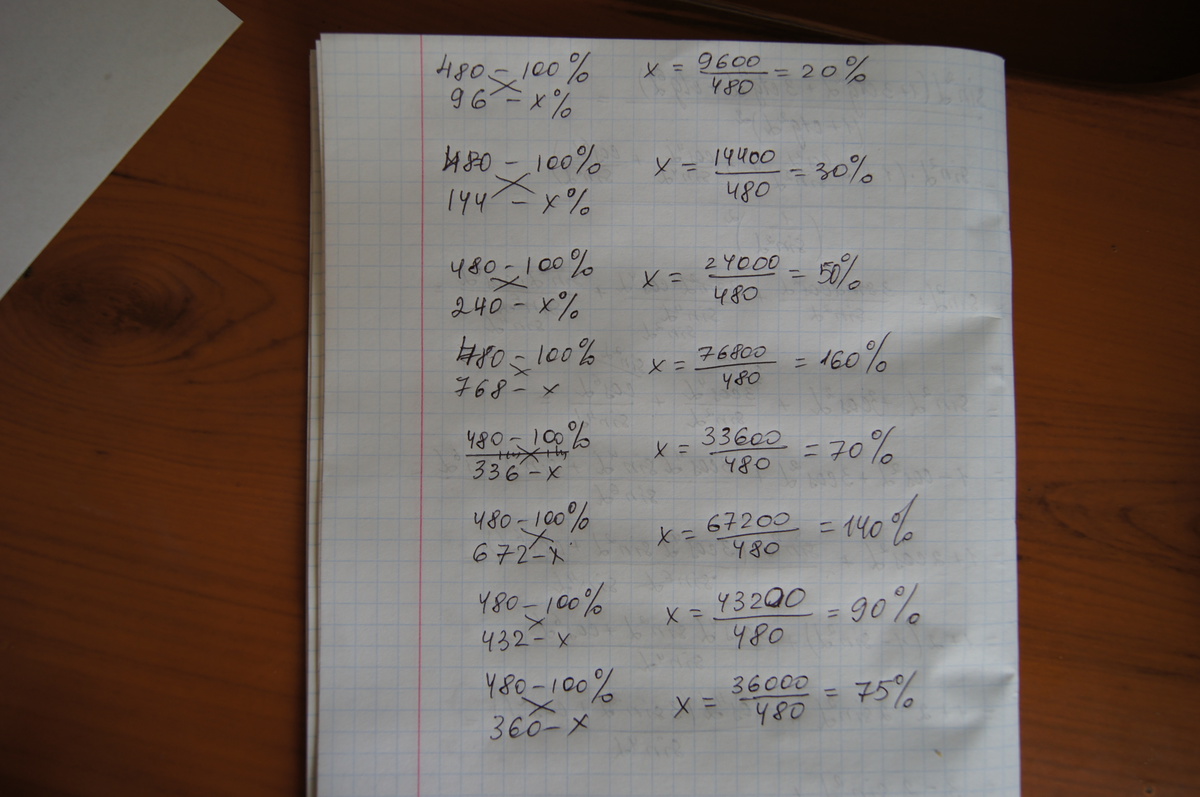 480 - 100% x = 9600/480 = 20%
96 - x%
480 - 100% x = 14400/480 = 30%
144 - x%
480 - 100% x = 24000/480 = 50%
240 - x%
480 - 100% x = 76800/480 = 160%
768 - x
480 - 100% x = 33600/480 = 70%
336 - x
480 - 100% x = 67200/480 = 140%
672 - x
480 - 100% x = 43200/480 = 90%
432 - x
480 - 100% x = 36000/480 = 75%
360 - x